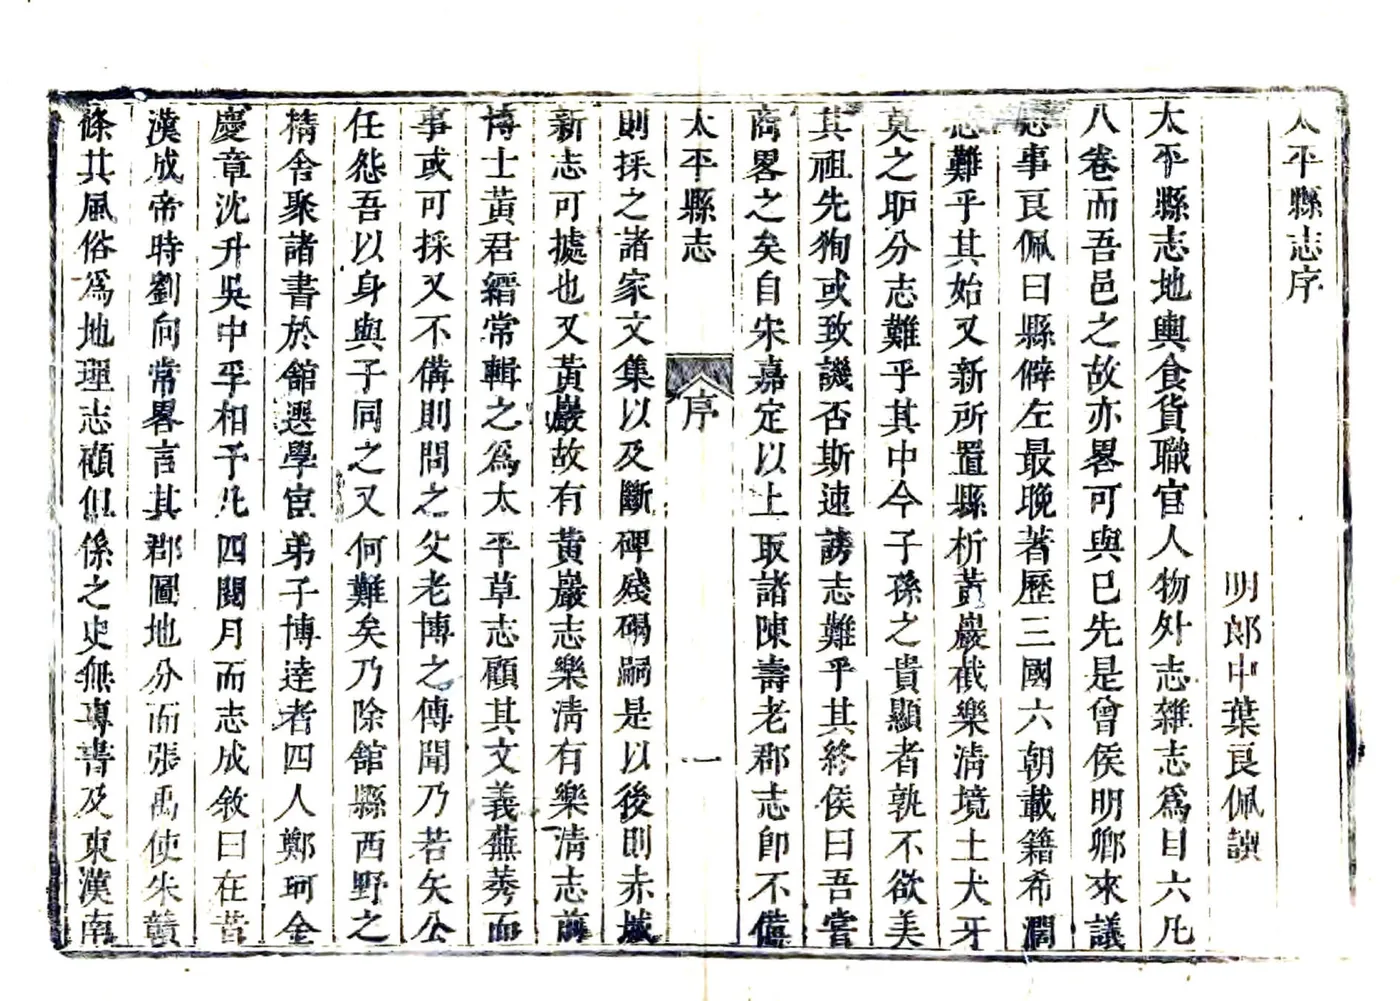 太平縣志序
明郎中葉良佩譔
太平縣志地輿食貨職官人物外志雜志爲目六凡
八卷而吾邑之故亦畧可與已先是曾侯明卿來議
志事良佩曰縣僻左最晚著歷三國六朝載籍希濶
志難乎其始又新所置縣析黃巖截樂淸境土犬牙
莫之耶分志難乎其中今子孫之貴顯者孰不欲美
其祖先狥或致譏否斯速謗志難乎其終侯曰吾嘗
商畧之矣自宋嘉定以上取諸陳壽老郡志卽不僃
太平縣志
序
一
則採之諸家文集以及斷碑殘碣嗣是以後則赤城
新志可據也又黃巖故有黃巖志樂淸有樂淸志前
博士黃君縉常輯之爲太平草志顧其文義蕪莠而
事或可採又不備則問之父老博之傳聞乃若矢公
任怨吾以身與子同之又何難矣乃除館縣西野之
精舍聚諸書於館選學官弟子博達者四人鄭珂金
慶章沈升吳中孚相予凡四閱月而志成敘曰在昔
漢成帝時劉向常畧言其郡圖地分而張禹使朱贛
條其風俗爲地理志顧但係之史無專書及東漢南